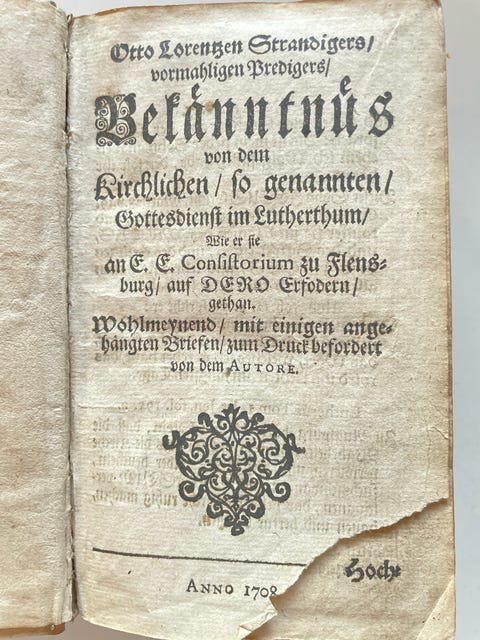 Otto Lorentzen Strandigers/
vormahligen Predigers/
Bekänntnüs
von dem
Kirchlichen/ so genannten/
Gottesdienst im Lutherthum/
Wie er sie
an E. E. Consistorium zu Flens-
burg/ auf DERO Erfodern/
gethan.
Wohlmeynend/ mit einigen ange-
hängten Briefen/ zum Druck befordert
von dem AUTORE.
ANNO 1708
Hoch-